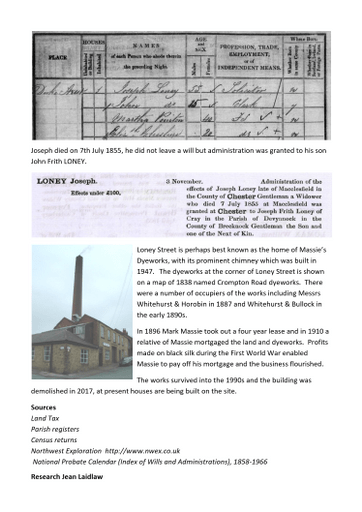 PLACE
HOUSES
Uninhabited or Building
Inhabited
NAMES
of each Person who abode therein the preceding Night.
AGE and SEX
Males
Females
PROFESSION, TRADE, EMPLOYMENT, or of INDEPENDENT MEANS.
Where Born
Duke Street 1 Joseph Loney Solicitor
John do 15 Clerk y
Martha
Joseph died on 7th July 1855, he did not leave a will but administration was granted to his son
John Frith LONEY.
LONEY Joseph. 3 November. Administration of the
Effects under £200, effects of Joseph Loney late of Macclesfield in
the County of Chester Gentleman a Widower
who died 7 July 1855 at Macclesfield was
granted at Chester to Joseph Frith Loney of
Cray in the Parish of Devynnock in the
County of Brecknock Gentleman the Son and
one of the Next of Kin.
Loney Street is perhaps best known as the home of Massie's
Dyeworks, with its prominent chimney which was built in
1947. The dyeworks at the corner of Loney Street is shown
on a map of 1838 named Crompton Road dyeworks. There
were a number of occupiers of the works including Messrs
Whitehurst & Horobin in 1887 and Whitehurst & Bullock in
the early 1890s.
In 1896 Mark Massie took out a four year lease and in 1910 a
relative of Massie mortgaged the land and dyeworks. Profits
made on black silk during the First World War enabled
Massie to pay off his mortgage and the business flourished.
The works survived into the 1990s and the building was
demolished in 2017, at present houses are being built on the site.
Sources
Land Tax
Parish registers
Census returns
Northwest Exploration http://www.nwex.co.uk
National Probate Calendar (Index of Wills and Administrations), 1858-1966
Research Jean Laidlaw